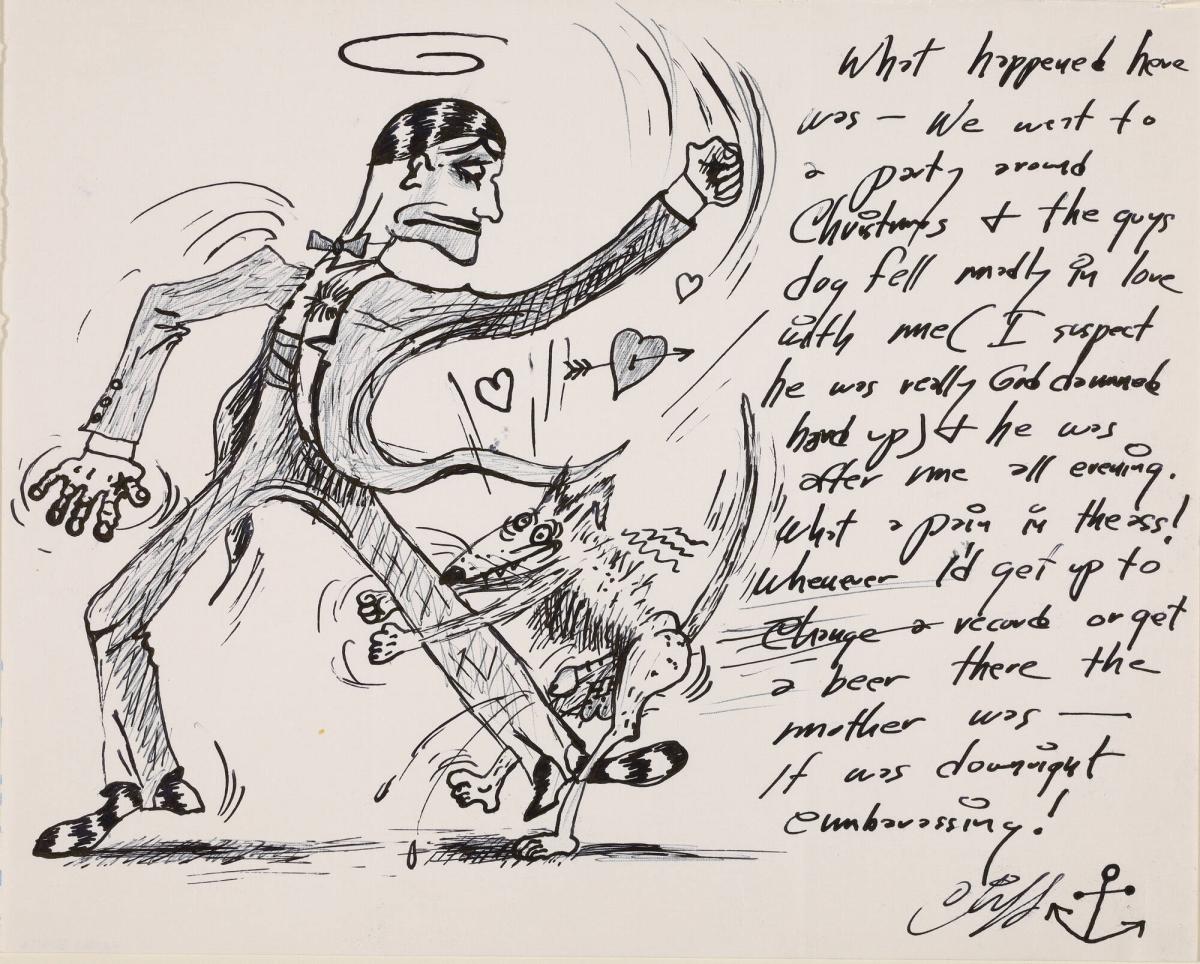 What happened here
was — We went to
a party around
Christmas & the guys
dog fell madly in love
with me ( I suspect
he was really God damned
hard up) & he was
after me all evening.
What a pain in the ass!
Whenever I'd get up to
Change a record or get
a beer there the
mother was —
It was downright
embarassing!
Cliff